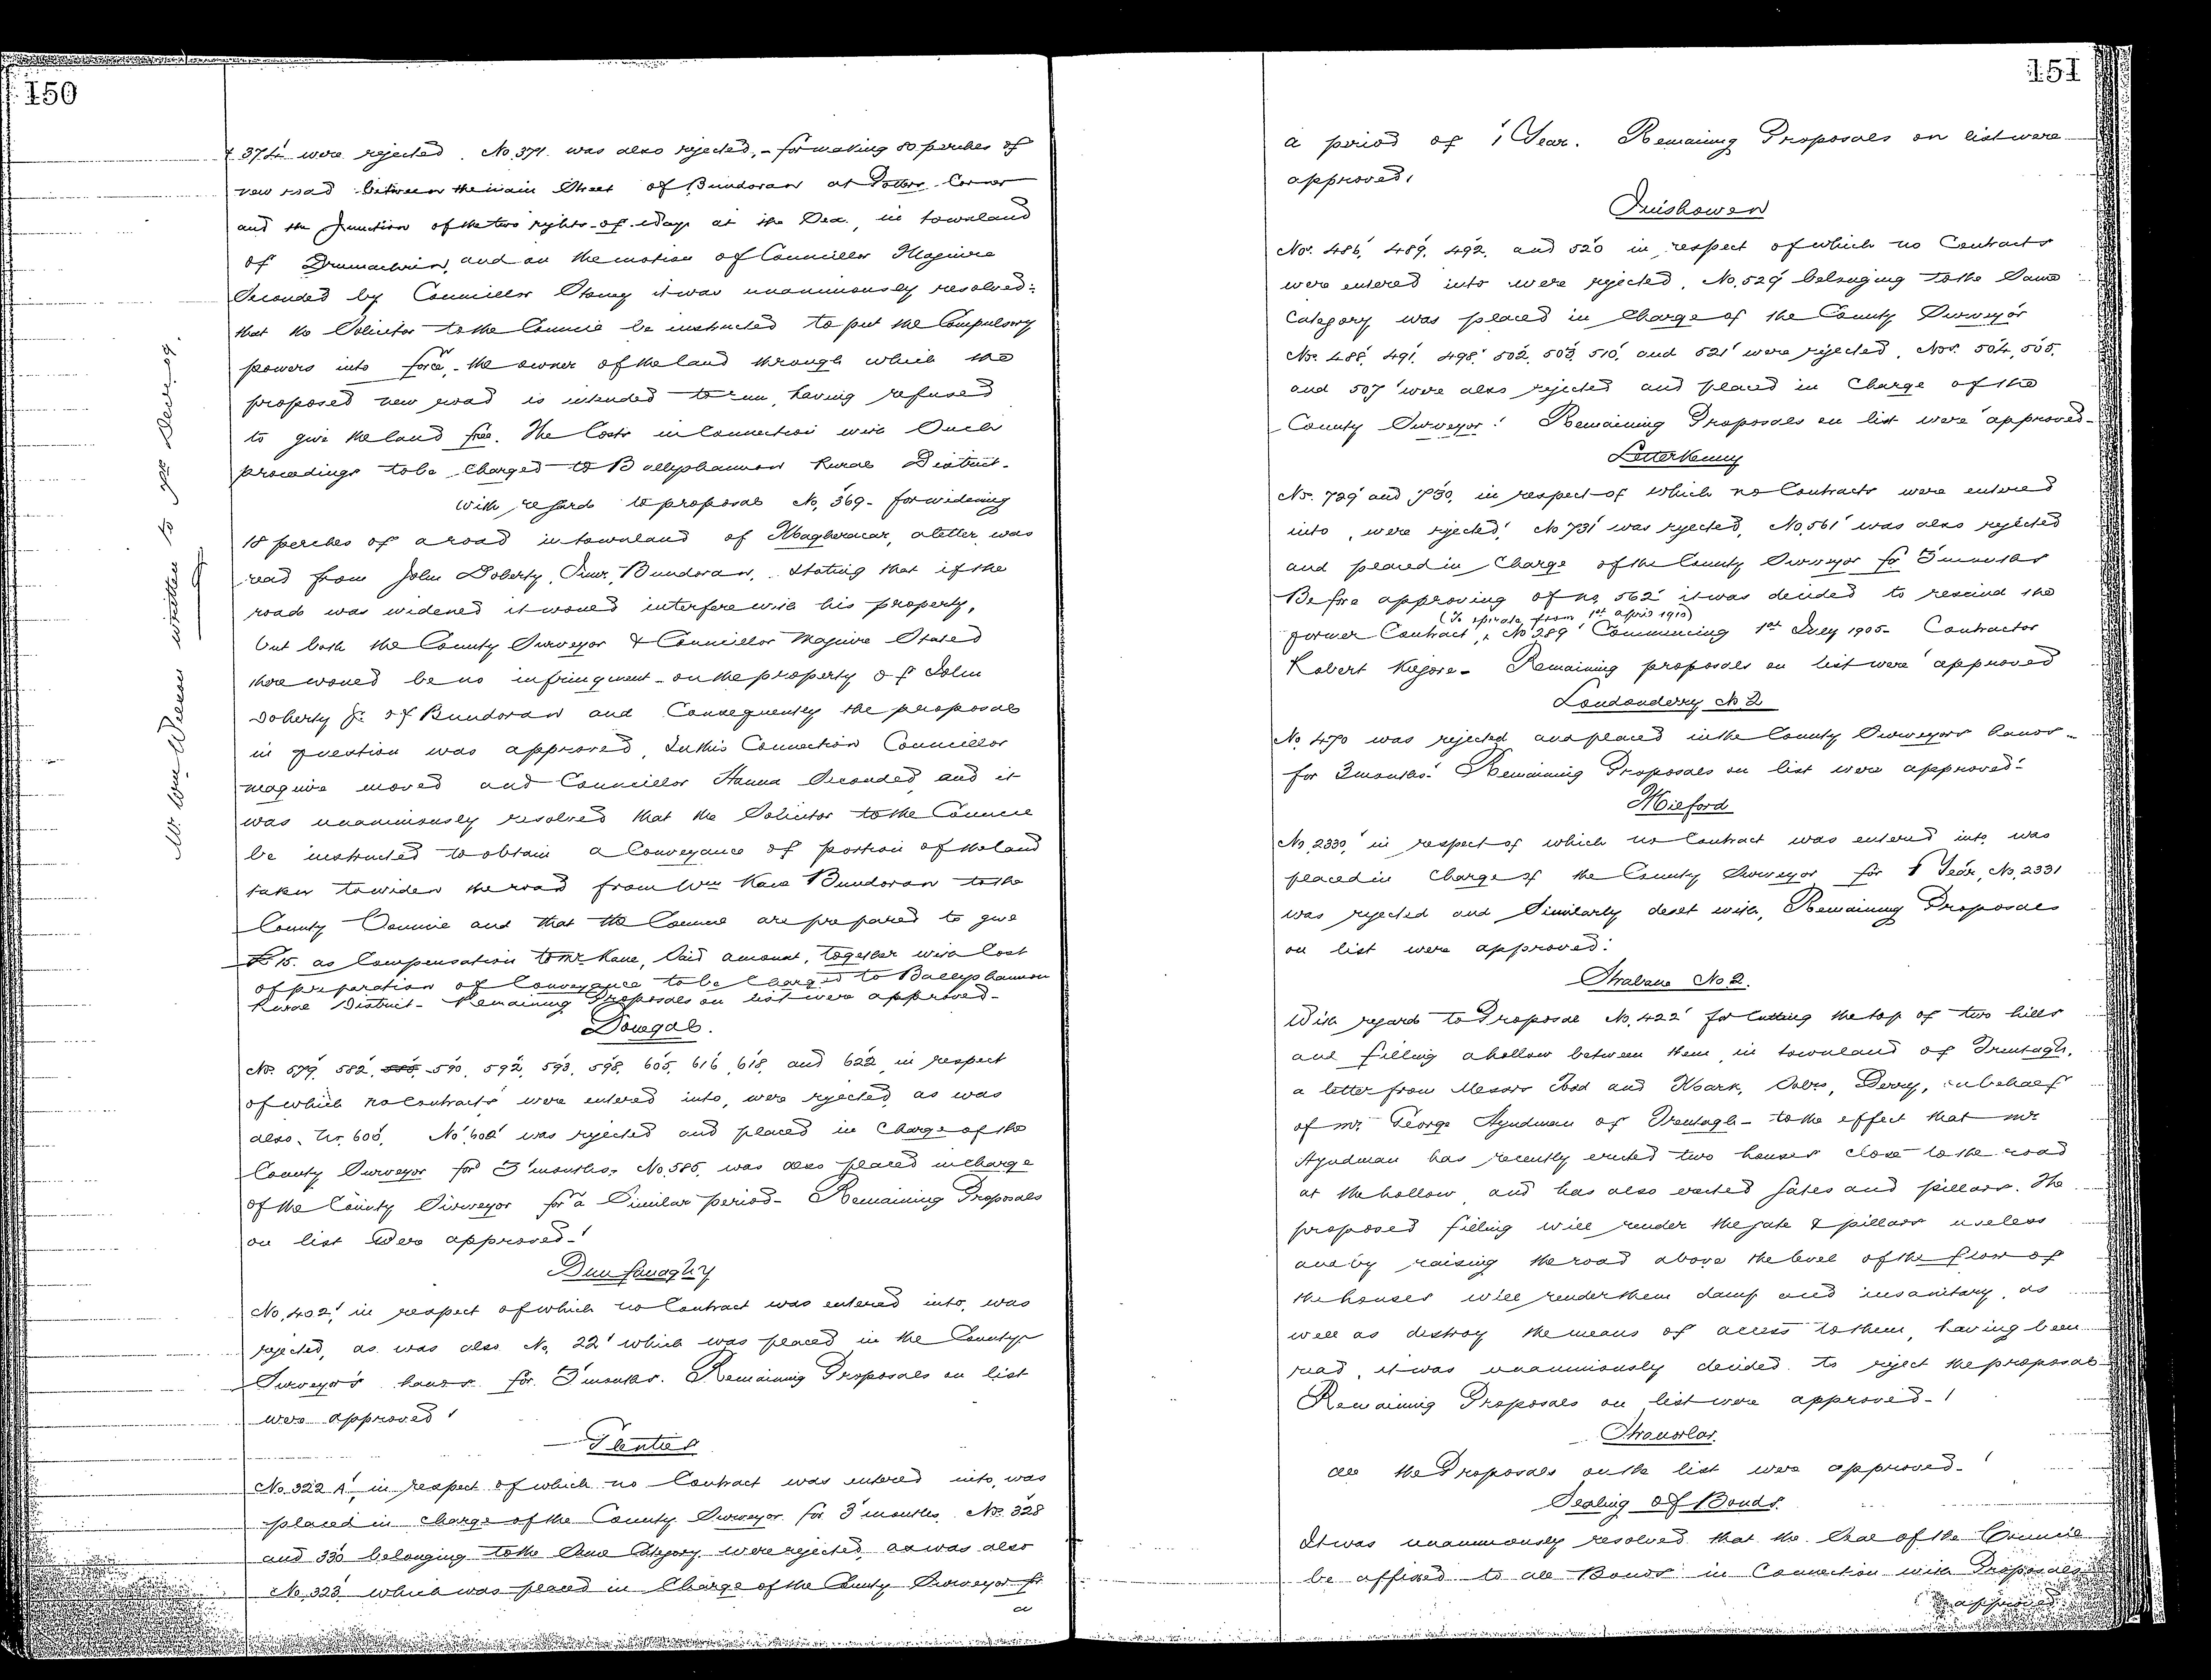 150
& 374 were rejected. No. 371 was also rejected, - for making 80 perches of
new road between the main Street of Bundoran at Potters Corner
and the Junction of the two rights-of-way at the Sea, in townland
of and on the motion of Councillor Maguire
Seconded by Councillor it was unanimously resolved:-
that the Solicitor to the Council be instructed to put the Compulsory
powers into force, - the owner of the land through which the
proposed new road is intended to run, having refused
to give the land free. The Costs in Connection with Such
proceedings to be Charged to Ballyshannon Rural District.
With regard to proposal No. 369 - for widening
18 perches of a road in townland of Magheracar, a letter was
read from John Doherty, Junr, Bundoran, Stating that if the
road was widened it would interfere with his property,
but both the County Surveyor & Councillor Maguire Stated
there would be no infringment on the property of John
Doherty Jr. of Bundoran and Consequently the proposal
in question was approved, In this Connection Councillor
Maguire moved and Councillor Hanna Seconded and it
was unanimously resolved that the Solicitor to the Council
be instructed to obtain a Conveyance of portion of the land
taken to widen the road from Wm Kane Bundoran to the
County Council and that the Council are prepared to give
£15. as Compensation to Mr Kane, Said amount, together with Cost
of preparation of Conveyance to be Charged to Ballyshannon
Rural District - Remaining Proposals on list were approved -
Donegal.
Nos. 579, 582, 590, 592, 593, 598, 605, 616, 618, and 622, in respect
of which no Contracts were entered into, were rejected, as was
also, No. 600. No. 602 was rejected and placed in Charge of the
County Surveyor for 3 months, No. 585, was also placed in charge
of the County Surveyor for a Similar period - Remaining Proposals
on list were approved -
Dunfanaghy
No. 402, in respect of which no Contract was entered into, was
rejected, as was also No. 22 which was placed in the County
Surveyor's hands for 3 months. Remaining Proposals on list
were approved
Glenties
No. 322 A, in respect of which no Contract was entered into, was
placed in charge of the County Surveyor for 3 months. Nos. 328
and 330 belonging to the Same Category were rejected, as was also
No. 323 which was placed in Charge of the County Surveyor for
a
Mr. Wm. written to Decr. 09.
151
a period of 1 Year. Remaining Proposals on list were
approved.
Inishowen
Nos. 486, 489, 492, and 520 in respect of which no Contracts
were entered into were rejected. No. 529 belonging to the Same
Category was placed in Charge of the County Surveyor
Nos. 488, 491, 498, 502, 503, 510, and 521 were rejected. Nos. 504, 505,
and 507 were also rejected and placed in Charge of the
County Surveyor. Remaining Proposals on list were approved -
Letterkenny
Nos. 729 and 730, in respect of which no Contracts were entered
into, were rejected, No 731 was rejected, No. 561 was also rejected
and placed in Charge of the County Surveyor for 3 months
Before approving of No 562 it was decided to rescind the
(To operate from 1st April 1910)
former Contract, No 289 Commencing 1st July 1905 - Contractor
Robert - Remaining proposals on list were approved
Londonderry No 2
No. 470 was rejected and placed in the County Surveyors hands -
for 3 months. Remaining Proposals on list were approved.
Milford
No. 2330, in respect of which no Contract was entered into, was
placed in Charge of the County Surveyor for 1 Year, No. 2331
was rejected and Similarly dealt with, Remaining Proposals
on list were approved.
Strabane No. 2.
With regard to Proposal No. 422 for Cutting the top of two hills
and filling a hollow between them in townland of Trentagh,
a letter from Messrs Todd and Mark, Solrs, Derry, on behalf
of Mr. George Hyndman of Trentagh - to the effect that Mr
Hyndman has recently erected two houses close to the road
at the hollow and has also erected gates and pillars. The
proposed filling will render the gate & pillars useless
and by raising the road above the level of the floor of
the houses will render them damp and insanitary, as
well as destroy the means of access to them, having been
read, it was unanimously decided to reject the proposal
Remaining Proposals on list were approved -
Stranorlar.
All the Proposals on the list were approved -
Sealing of Bonds.
It was unanimously resolved that the Seal of the Council
be affixed to all Bonds in Connection with Proposals
approved